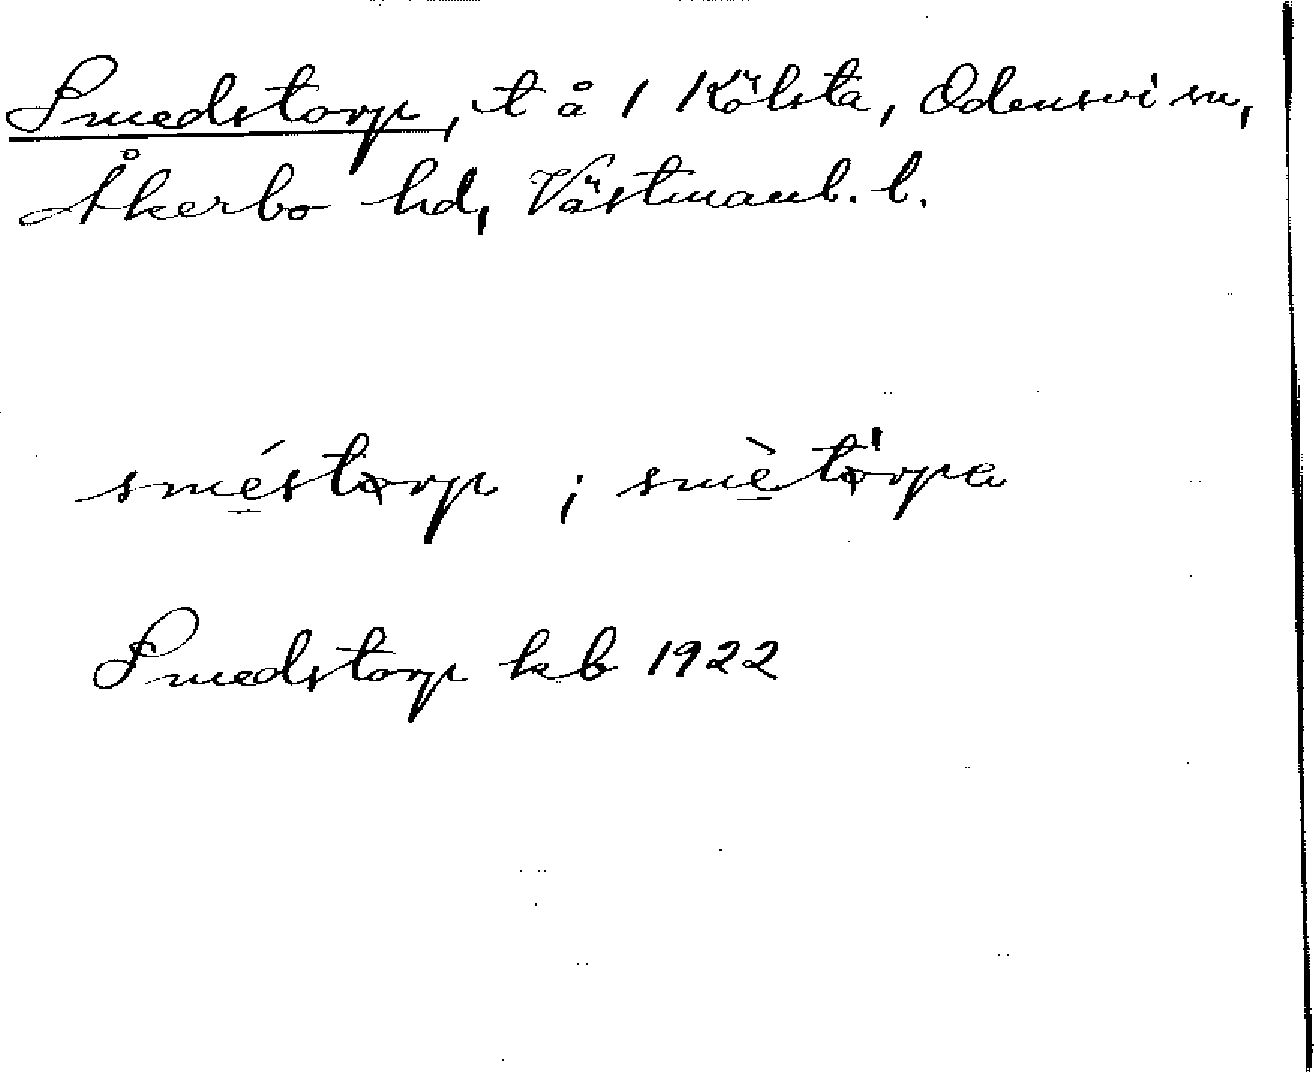 Smedstorp, t å 1 Kölsta, Odensvi sn,
Åkerbo hd, Västmanl. l.
sméstorp ; smètörpa
Smedstorp kb 1922